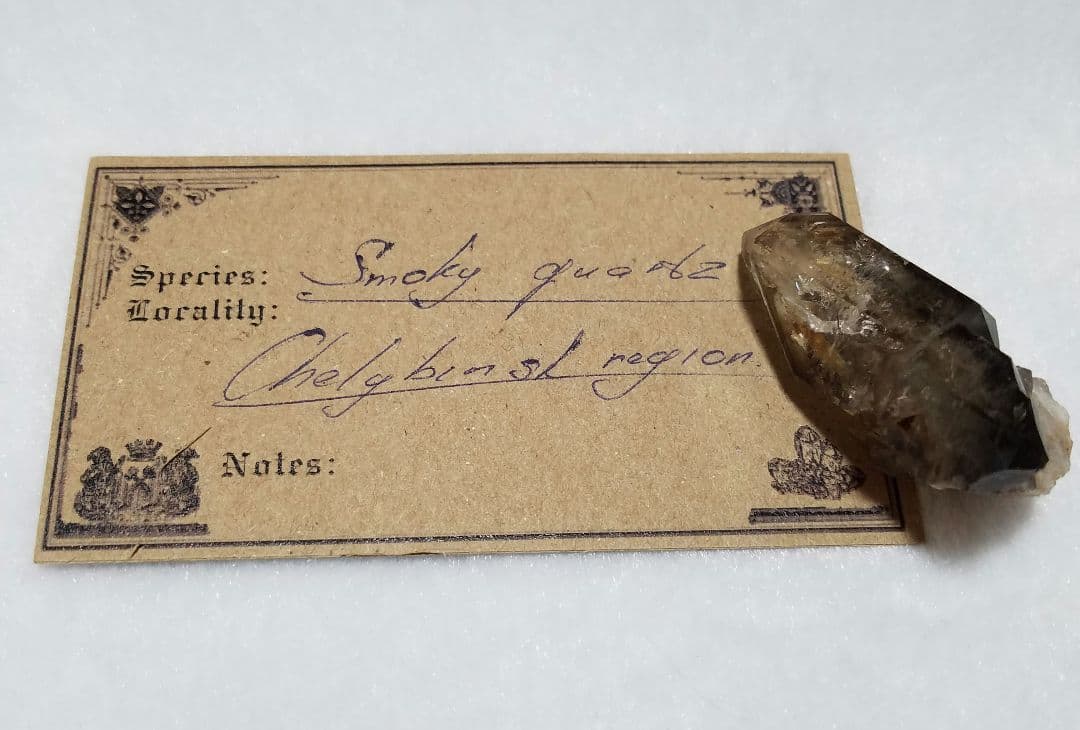 Species: Smoky quartz
Locality:
Chelybinsk region.
Notes: